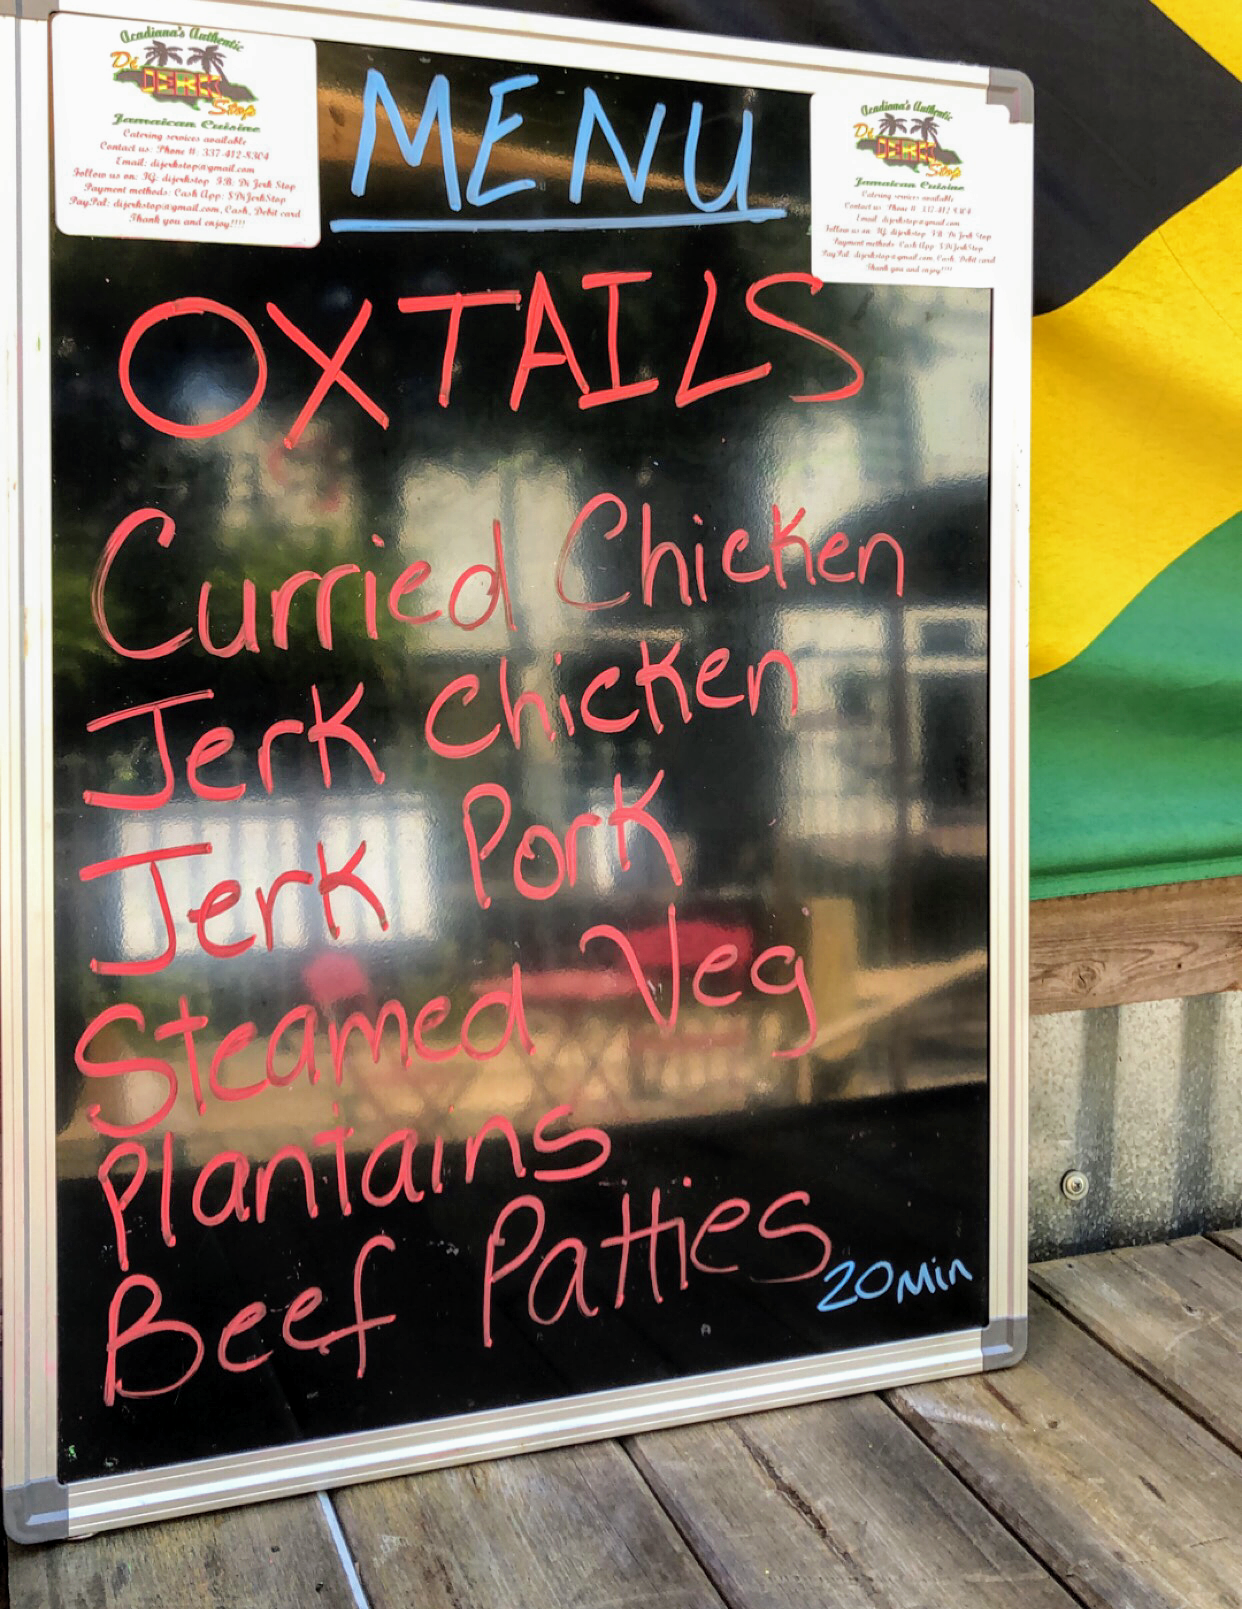 Acadiana's Authentic
De
JERK
Stop
Jamaican Cuisine
Catering services available
Contact us: Phone #: 337-412-8304
Email: dijerkstop@gmail.com
Follow us on: IG: dijerkstop FB: Di Jerk Stop
Payment methods: Cash App: $DiJerkStop
PayPal: dijerkstop@gmail.com, Cash, Debit card
Thank you and enjoy!!!!
MENU
Acadiana's Authentic
De
JERK
Stop
Jamaican Cuisine
Catering services available
Contact us: Phone #: 337-412-8304
Email: dijerkstop@gmail.com
Follow us on: IG: dijerkstop FB: Di Jerk Stop
Payment methods: Cash App: $DiJerkStop
PayPal: dijerkstop@gmail.com, Cash, Debit card
Thank you and enjoy!!!!
OXTAILS
Curried Chicken
Jerk Chicken
Jerk Pork
Steamed Veg
Plantains
Beef Patties 20 Min